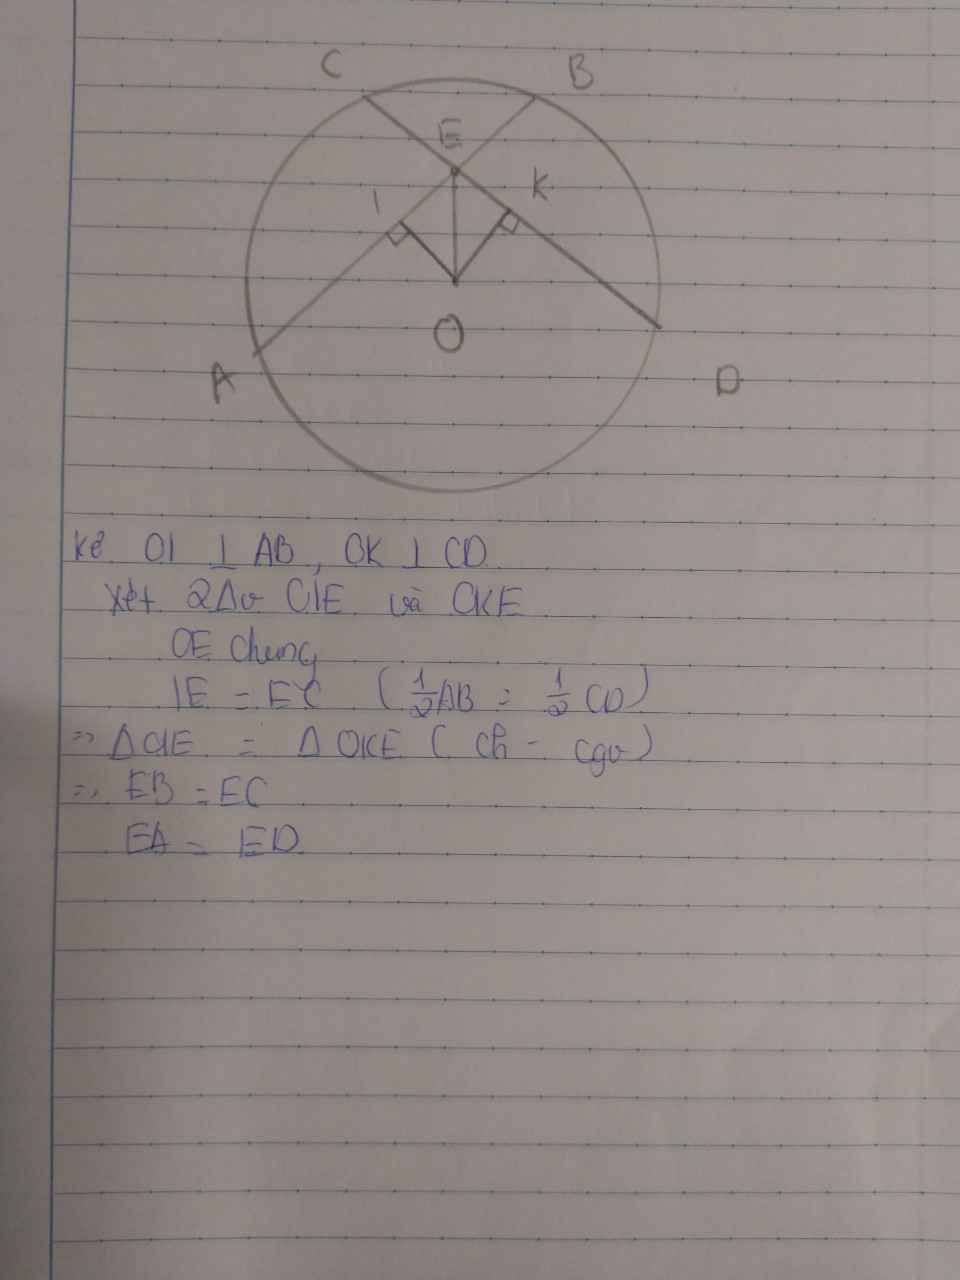 C B
E
I K
O
A D
Kẻ OI ⊥ AB, OK ⊥ CD
Xét 2Δv OIE và OKE
OE chung
IE = EC ( 1/2 AB = 1/2 CD )
=> ΔOIE = Δ OKE ( ch - cgv )
=> EB = EC
EA = ED